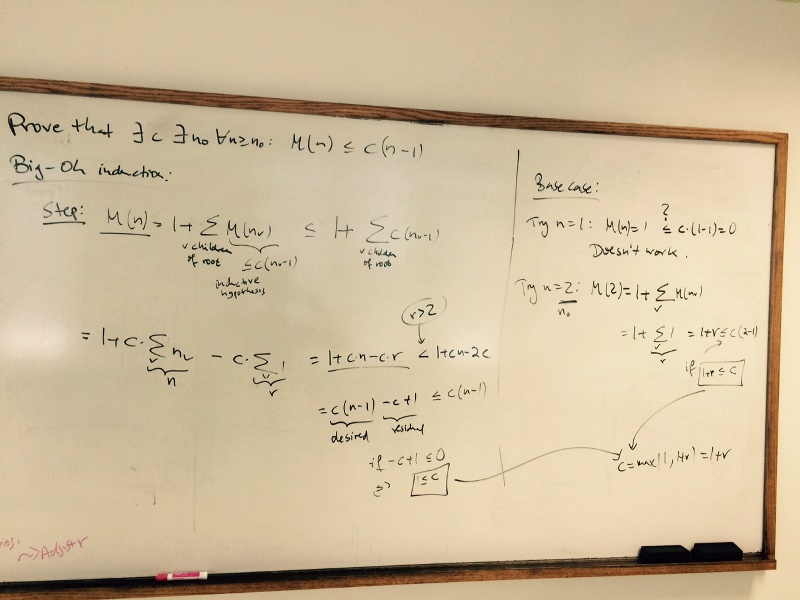 Prove that ∃c ∃n₀ ∀n≥n₀: M(n) ≤ c(n-1)
Big-Oh induction:
Step: M(n) = 1+ ∑ M(nᵥ) ≤ 1+ ∑ c(nᵥ-1)
v children of root
≤c(nᵥ-1)
v children of root
inductive hypothesis
= 1+c·∑ᵥ nᵥ - c·∑ᵥ 1 = 1+c·n-c·r < 1+cn-2c
n
r
r>2
= c(n-1) -c+1 ≤ c(n-1)
desired
residual
if -c+1 ≤0
1≤c
Base case:
Try n=1: M(n)=1 ≤ c·(1-1)=0
?
Doesn't work.
Try n=2: M(2)=1+∑ᵥ M(nᵥ)
n₀
= 1+ ∑ᵥ 1 = 1+r ≤ c(2-1)
r
if 1+r ≤ c
c=max(1, 1+r) =1+r
~>Adjust r